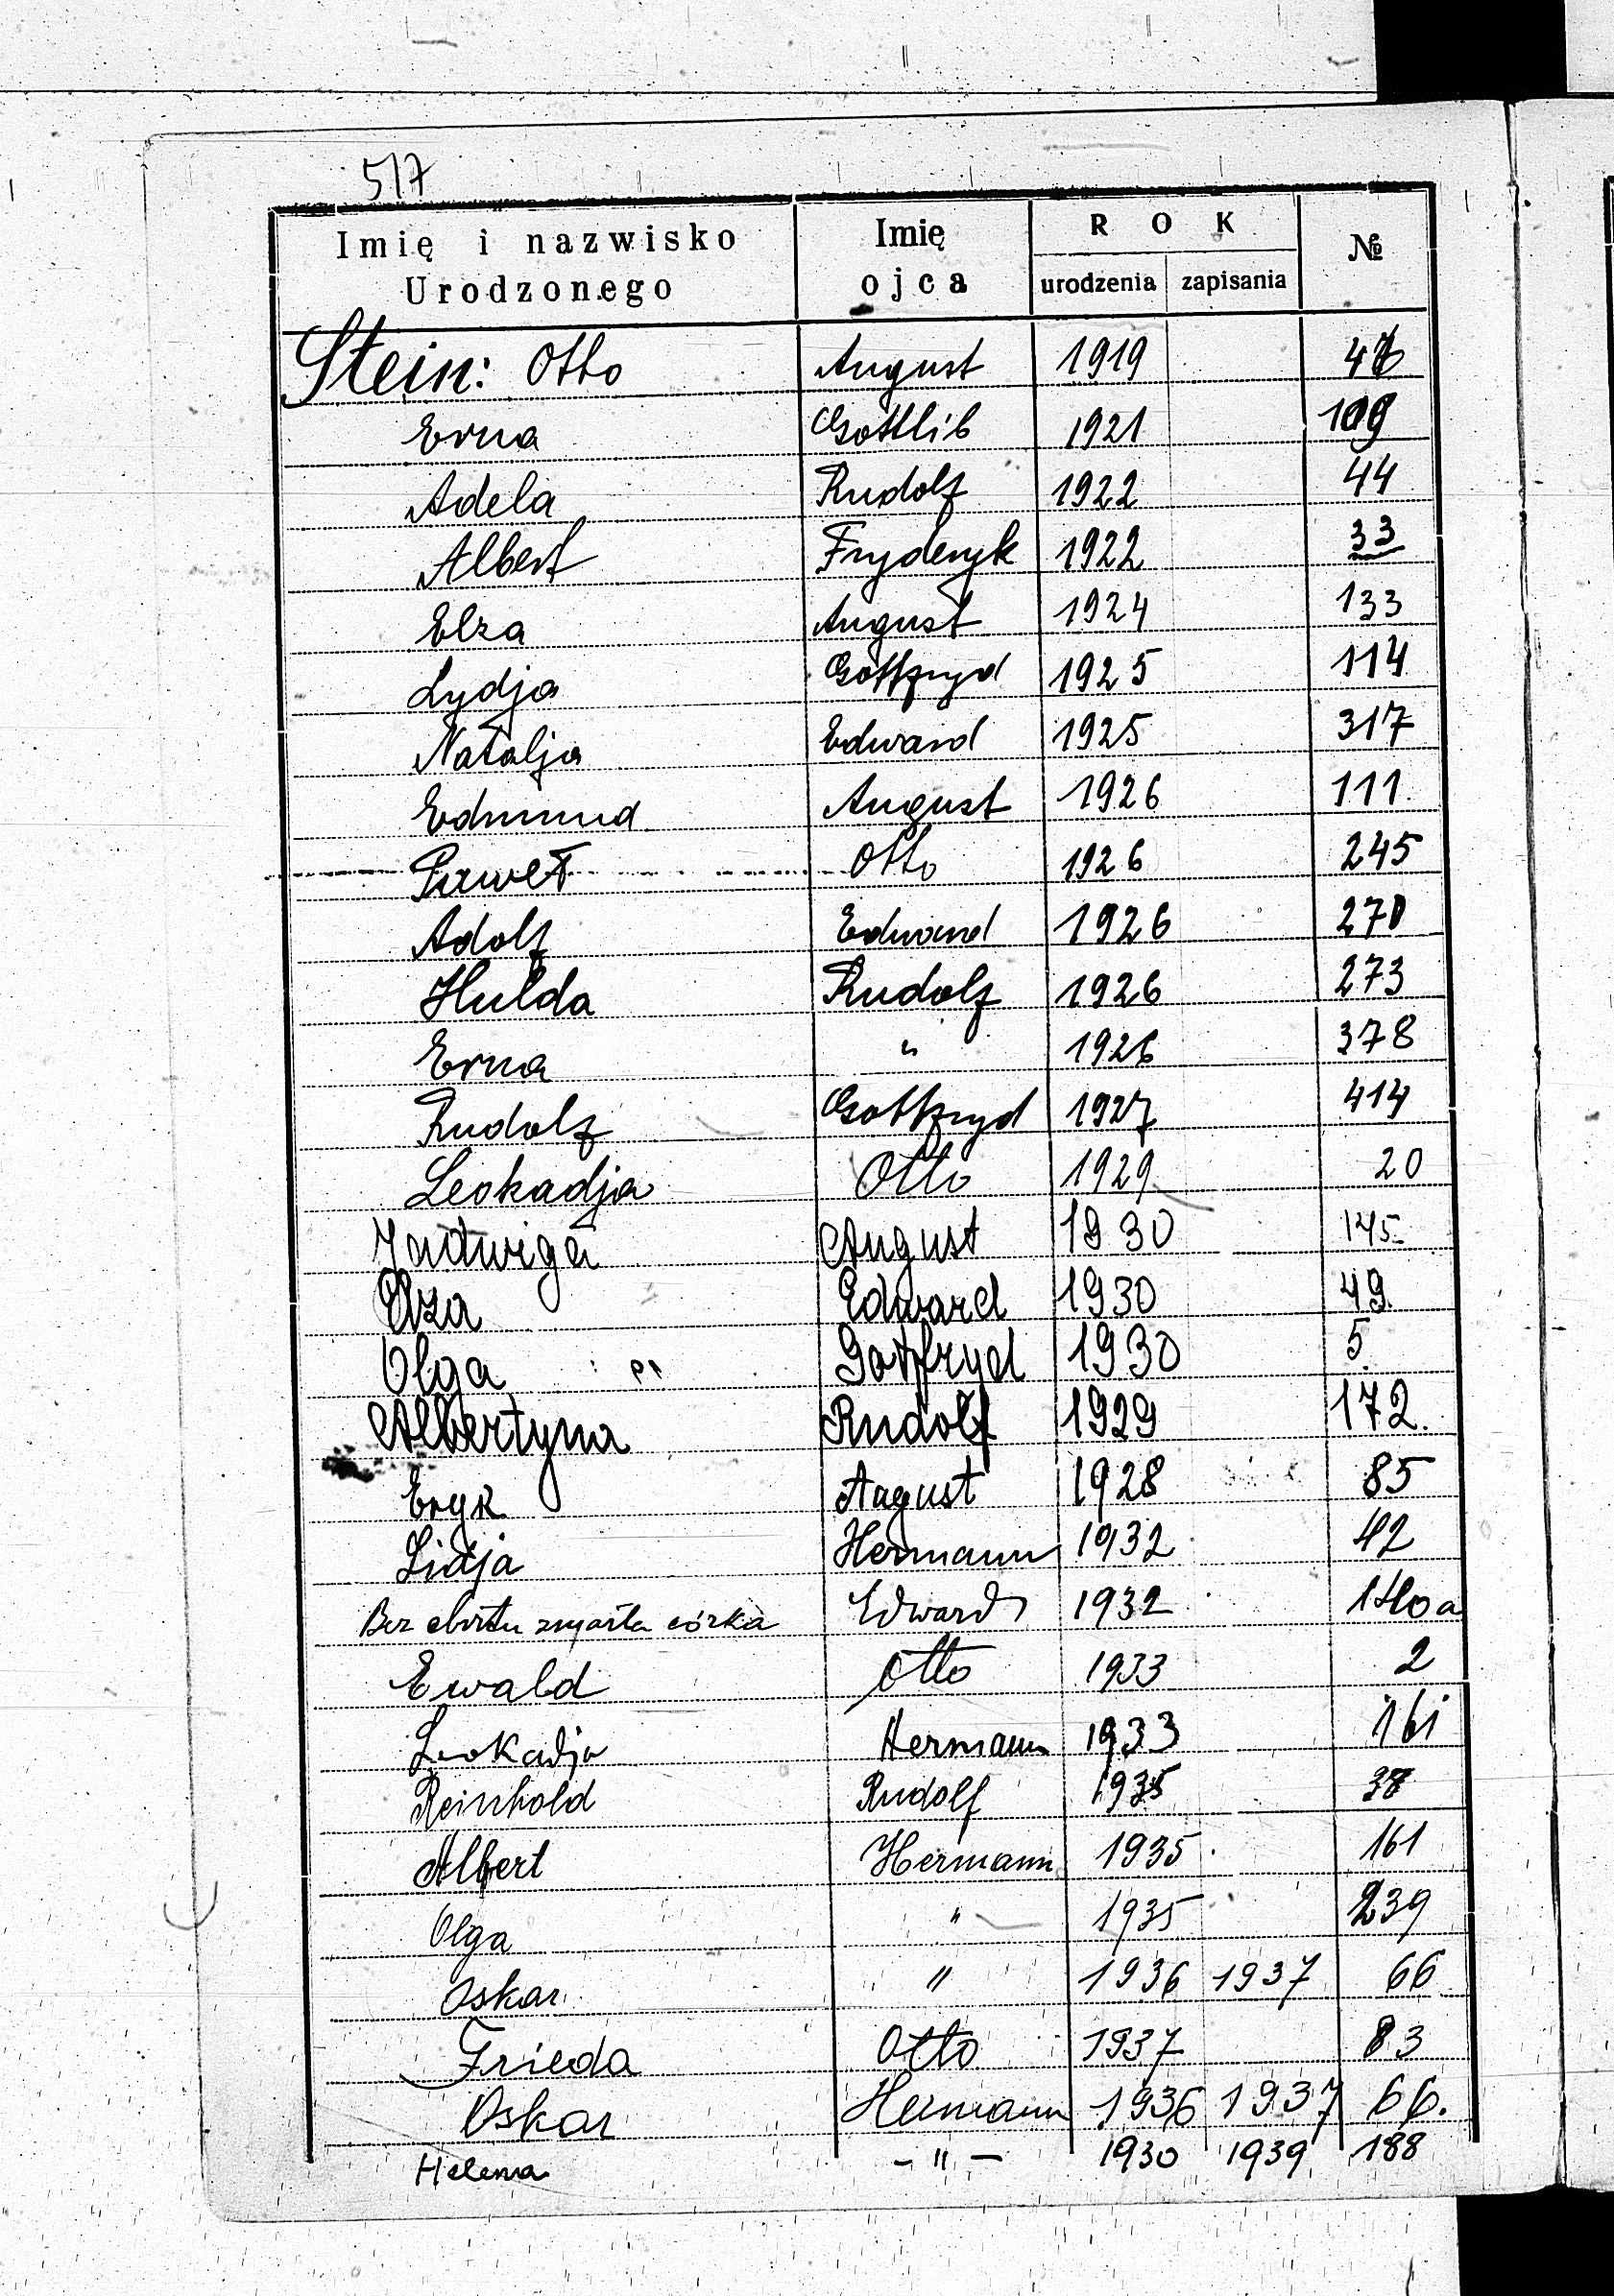 517
Imię i nazwisko Urodzonego | Imię ojca | ROK urodzenia | ROK zapisania | №
Stein: Otto August 1919
Erna Gottlib 1921 109
Adela Rudolf 1922 44
Albert Fryderyk 1922 33
Elza August 1924 133
Lydja Gottfryd 1925 114
Natalja Edward 1925 317
Edmund August 1926 111
Paweł Otto 1926 245
Adolf Edward 1926 270
Hulda Rudolf 1926 273
Erna " 1926 378
Rudolf Gottfryd 1927 414
Leokadja Otto 1929 20
Jadwiga August 1930 145
Elza Edward 1930 49
Olga Gottfryd 1930 5
Albertyna Rudolf 1929 172.
Eryk August 1928 85
Lidja Hermann 1932 42
Bez chrztu zmarła córka Edward 1932 140a
Ewald Otto 1933 2
Leokadja Hermann 1933 161
Reinhold Rudolf 1935
Albert Hermann 1935 161
Olga " 1935 239
Oskar " 1936 1937 66
Frieda Otto 1937 83
Oskar Hermann 1936 1937 66.
Helena - " - 1930 1939 188